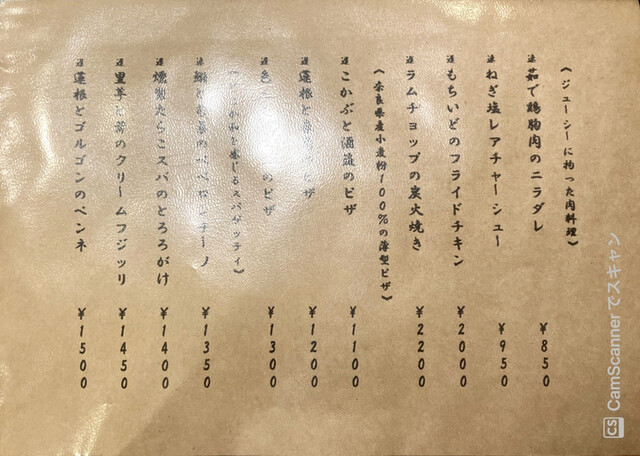 《ジューシーに拘った肉料理》
茹で鶏胸肉のニラダレ ¥850
ねぎ塩レアチャーシュー ¥950
もちいどのフライドチキン ¥2000
ラムチョップの炭火焼き ¥2200
《奈良県産小麦粉100%の薄型ピザ》
こかぶと酒盗のピザ ¥1100
蓮根と ピザ ¥1200
色 のピザ ¥1300
和を感じるスパゲッティ》
ペペロンチーノ ¥1350
燻製たらこスパのとろろがけ ¥1400
里芋と のクリームフジッリ ¥1450
蓮根とゴルゴンのペンネ ¥1500
CS CamScanner でスキャン